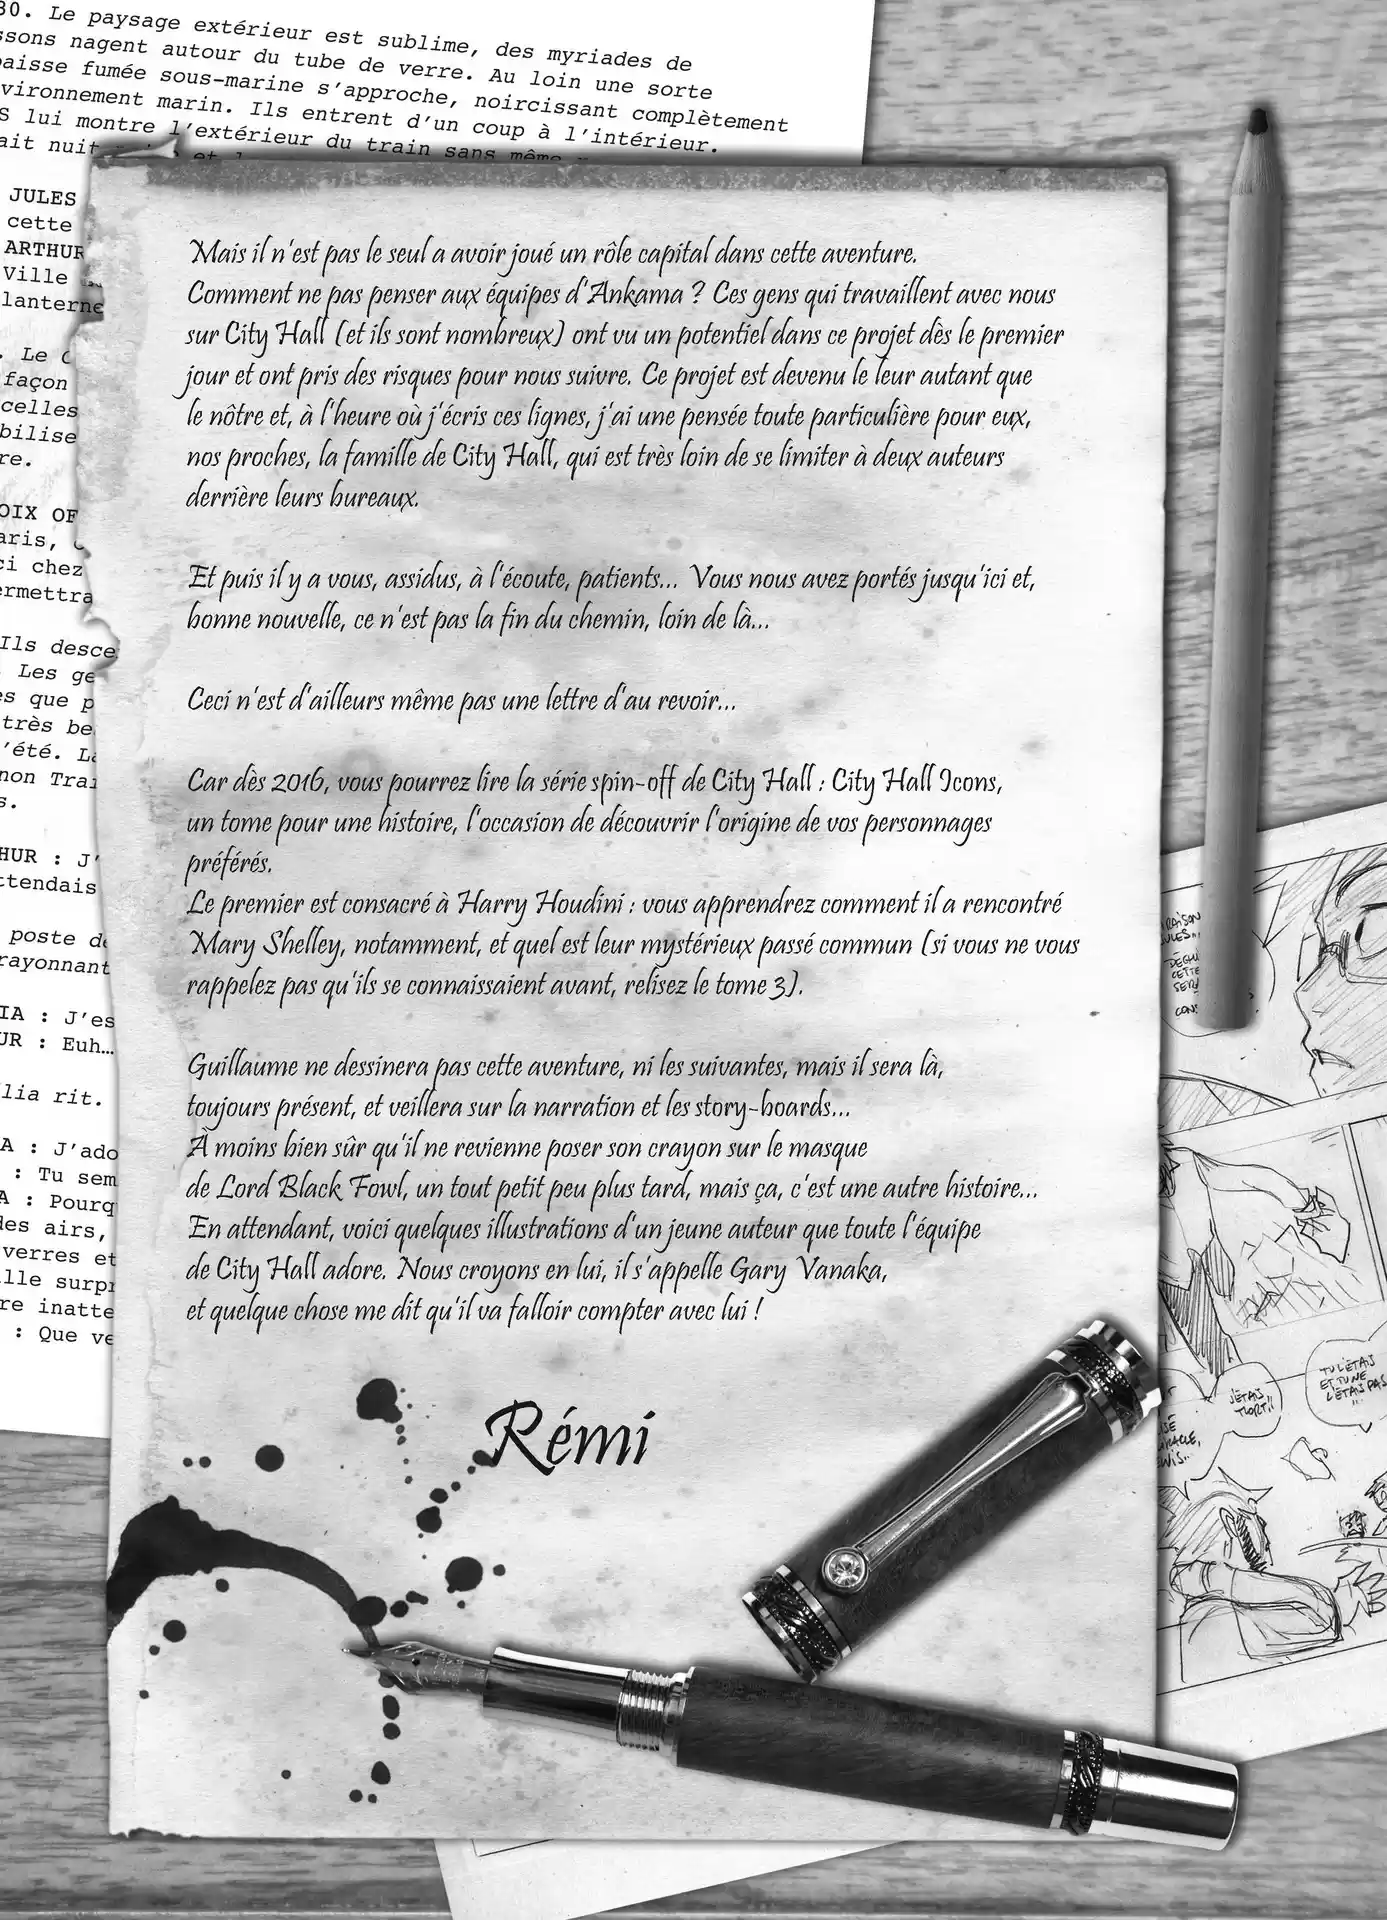 30. Le paysage extérieur est sublime, des myriades de
ssons nagent autour du tube de verre. Au loin une sorte
paisse fumée sous-marine s'approche, noircissant complètement
vironnement marin. Ils entrent d'un coup à l'intérieur.
S lui montre l'extérieur du train sans même
ait nuit
JULES
cette
ARTHUR
Ville
lanterne
. Le
façon
celles
bilise
re.
OIX OF
aris,
ci chez
ermettra
Ils desce
. Les ge
es que p
très be
'été. La
non Trai
s.
HUR : J'
ttendais
poste de
rayonnant
IA : J'es
UR : Euh…
lia rit.
A : J'ado
: Tu sem
A : Pourq
des airs,
verres et
lle surpr
re inatte
: Que ve
Mais il n'est pas le seul a avoir joué un rôle capital dans cette aventure.
Comment ne pas penser aux équipes d'Ankama ? Ces gens qui travaillent avec nous
sur City Hall (et ils sont nombreux) ont vu un potentiel dans ce projet dès le premier
jour et ont pris des risques pour nous suivre. Ce projet est devenu le leur autant que
le nôtre et, à l'heure où j'écris ces lignes, j'ai une pensée toute particulière pour eux,
nos proches, la famille de City Hall, qui est très loin de se limiter à deux auteurs
derrière leurs bureaux.
Et puis il y a vous, assidus, à l'écoute, patients... Vous nous avez portés jusqu'ici et,
bonne nouvelle, ce n'est pas la fin du chemin, loin de là...
Ceci n'est d'ailleurs même pas une lettre d'au revoir...
Car dès 2016, vous pourrez lire la série spin-off de City Hall : City Hall Icons,
un tome pour une histoire, l'occasion de découvrir l'origine de vos personnages
préférés.
Le premier est consacré à Harry Houdini : vous apprendrez comment il a rencontré
Mary Shelley, notamment, et quel est leur mystérieux passé commun (si vous ne vous
rappelez pas qu'ils se connaissaient avant, relisez le tome 3).
Guillaume ne dessinera pas cette aventure, ni les suivantes, mais il sera là,
toujours présent, et veillera sur la narration et les story-boards...
À moins bien sûr qu'il ne revienne poser son crayon sur le masque
de Lord Black Fowl, un tout petit peu plus tard, mais ça, c'est une autre histoire...
En attendant, voici quelques illustrations d'un jeune auteur que toute l'équipe
de City Hall adore. Nous croyons en lui, il s'appelle Gary Vanaka,
et quelque chose me dit qu'il va falloir compter avec lui !
Rémi
RAISON
ULES...
CETTE
J'ÉTAIS
MORT!!
TU L'ÉTAIS
ET TU NE
L'ÉTAIS PAS